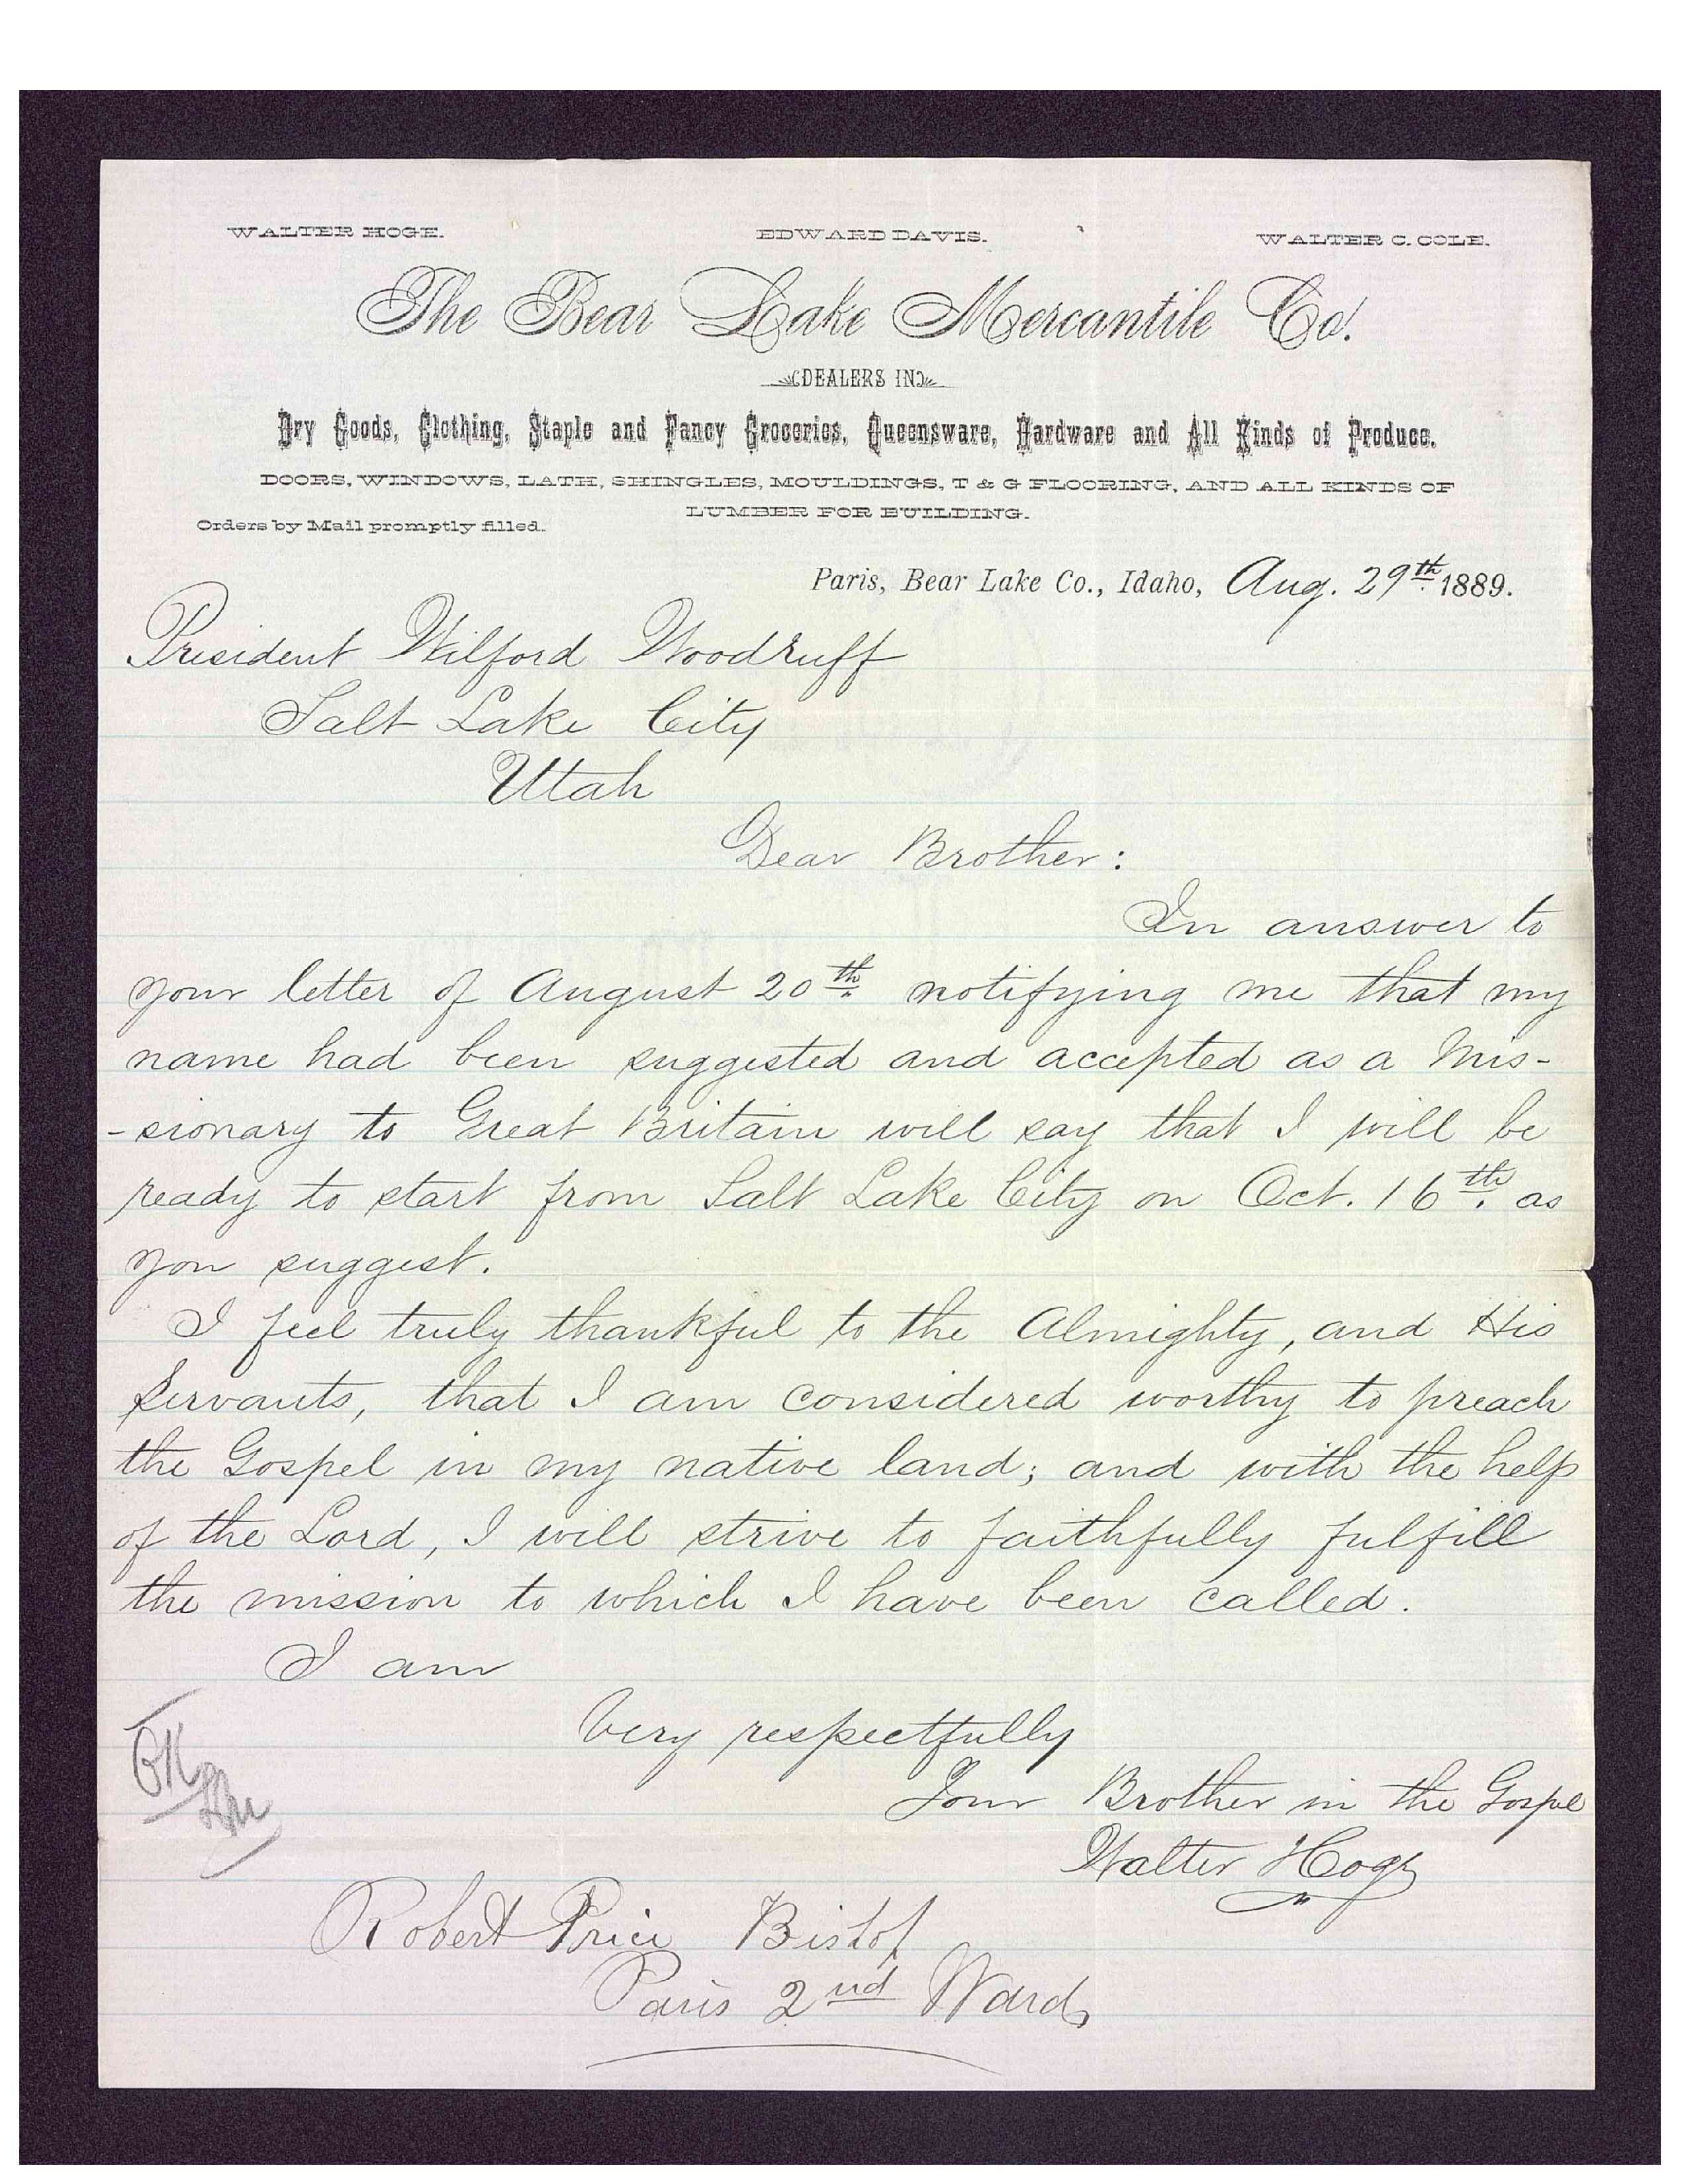 WALTER HOGE. EDWARD DAVIS. WALTER C. COLE.
The Bear Lake Mercantile Co.
DEALERS IN
Dry Goods, Clothing, Staple and Fancy Groceries, Queensware, Hardware and All Kinds of Produce.
DOORS, WINDOWS, LATH, SHINGLES, MOULDINGS, T & G FLOORING, AND ALL KINDS OF
LUMBER FOR BUILDING.
Orders by Mail promptly filled.
Paris, Bear Lake Co., Idaho, Aug. 29th 1889.
President Wilford Woodruff
Salt Lake City
Utah
Dear Brother:
In answer to
your letter of August 20th notifying me that my
name had been suggested and accepted as a Mis-
-sionary to Great Britain will say that I will be
ready to start from Salt Lake City on Oct. 16th as
you suggest.
I feel truly thankful to the Almighty, and His
Servants, that I am considered worthy to preach
the Gospel in my native land; and with the help
of the Lord, I will strive to faithfully fulfill
the mission to which I have been called.
I am
Very respectfully
Your Brother in the Gospel
Walter Hoge
OK
Robert Price Bishop
Paris 2nd Ward